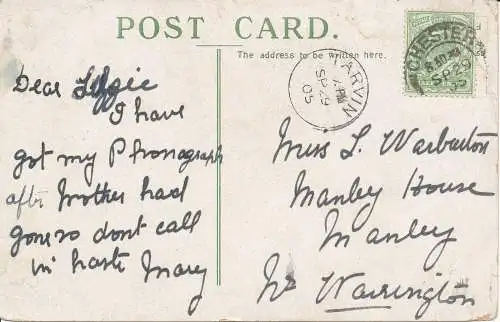 POST CARD.
The address to be written here.
Dear Lizzie
I have
got my Phonograph
after Mother had
gone so dont call
in haste Mary
CHESTER
8.30 PM
SP 29
05
TARVIN
PM
SP 29
05
Miss L. Warburton
Manley House
Manley
Nr Warrington